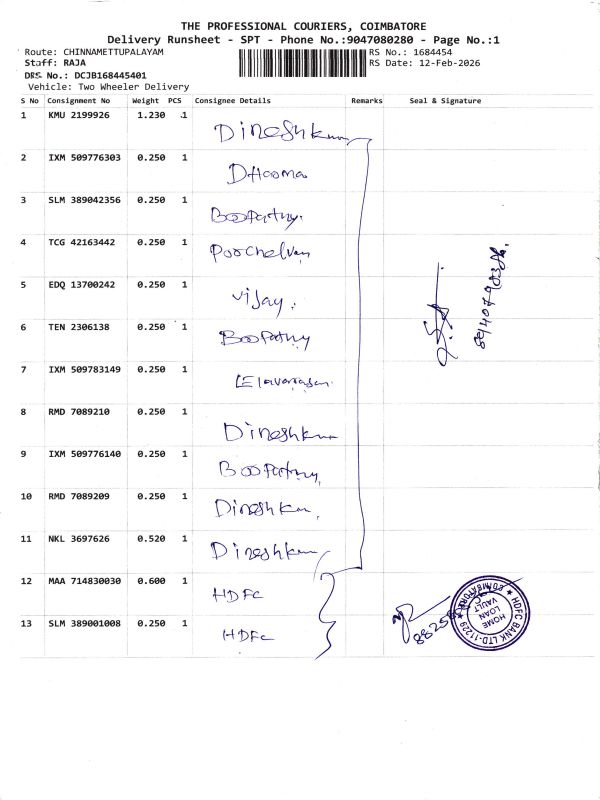 THE PROFESSIONAL COURIERS, COIMBATORE
Delivery Runsheet - SPT - Phone No.:9047080280 - Page No.:1
Route: CHINNAMETTUPALAYAM RS No.: 1684454
Staff: RAJA RS Date: 12-Feb-2026
DRS No.: DCJB168445401
Vehicle: Two Wheeler Delivery
S No Consignment No Weight PCS Consignee Details Remarks Seal & Signature
1 KMU 2199926 1.230 1 Dineshkum
2 IXM 509776303 0.250 1
3 SLM 389042356 0.250 1 Boopathy.
4 TCG 42163442 0.250 1 Poochelvan
5 EDQ 13700242 0.250 1 Vijay.
6 TEN 2306138 0.250 1 Boopathy
7 IXM 509783149 0.250 1
8 RMD 7089210 0.250 1 Dineshkum
9 IXM 509776140 0.250 1 Boopathy
10 RMD 7089209 0.250 1 Dineshkum
11 NKL 3697626 0.520 1 Dineshkum
12 MAA 714830030 0.600 1 HDFC
13 SLM 389001008 0.250 1 HDFC
HDFC BANK LTD-11229
COIMBATORE
HOME
LOAN
VAULT